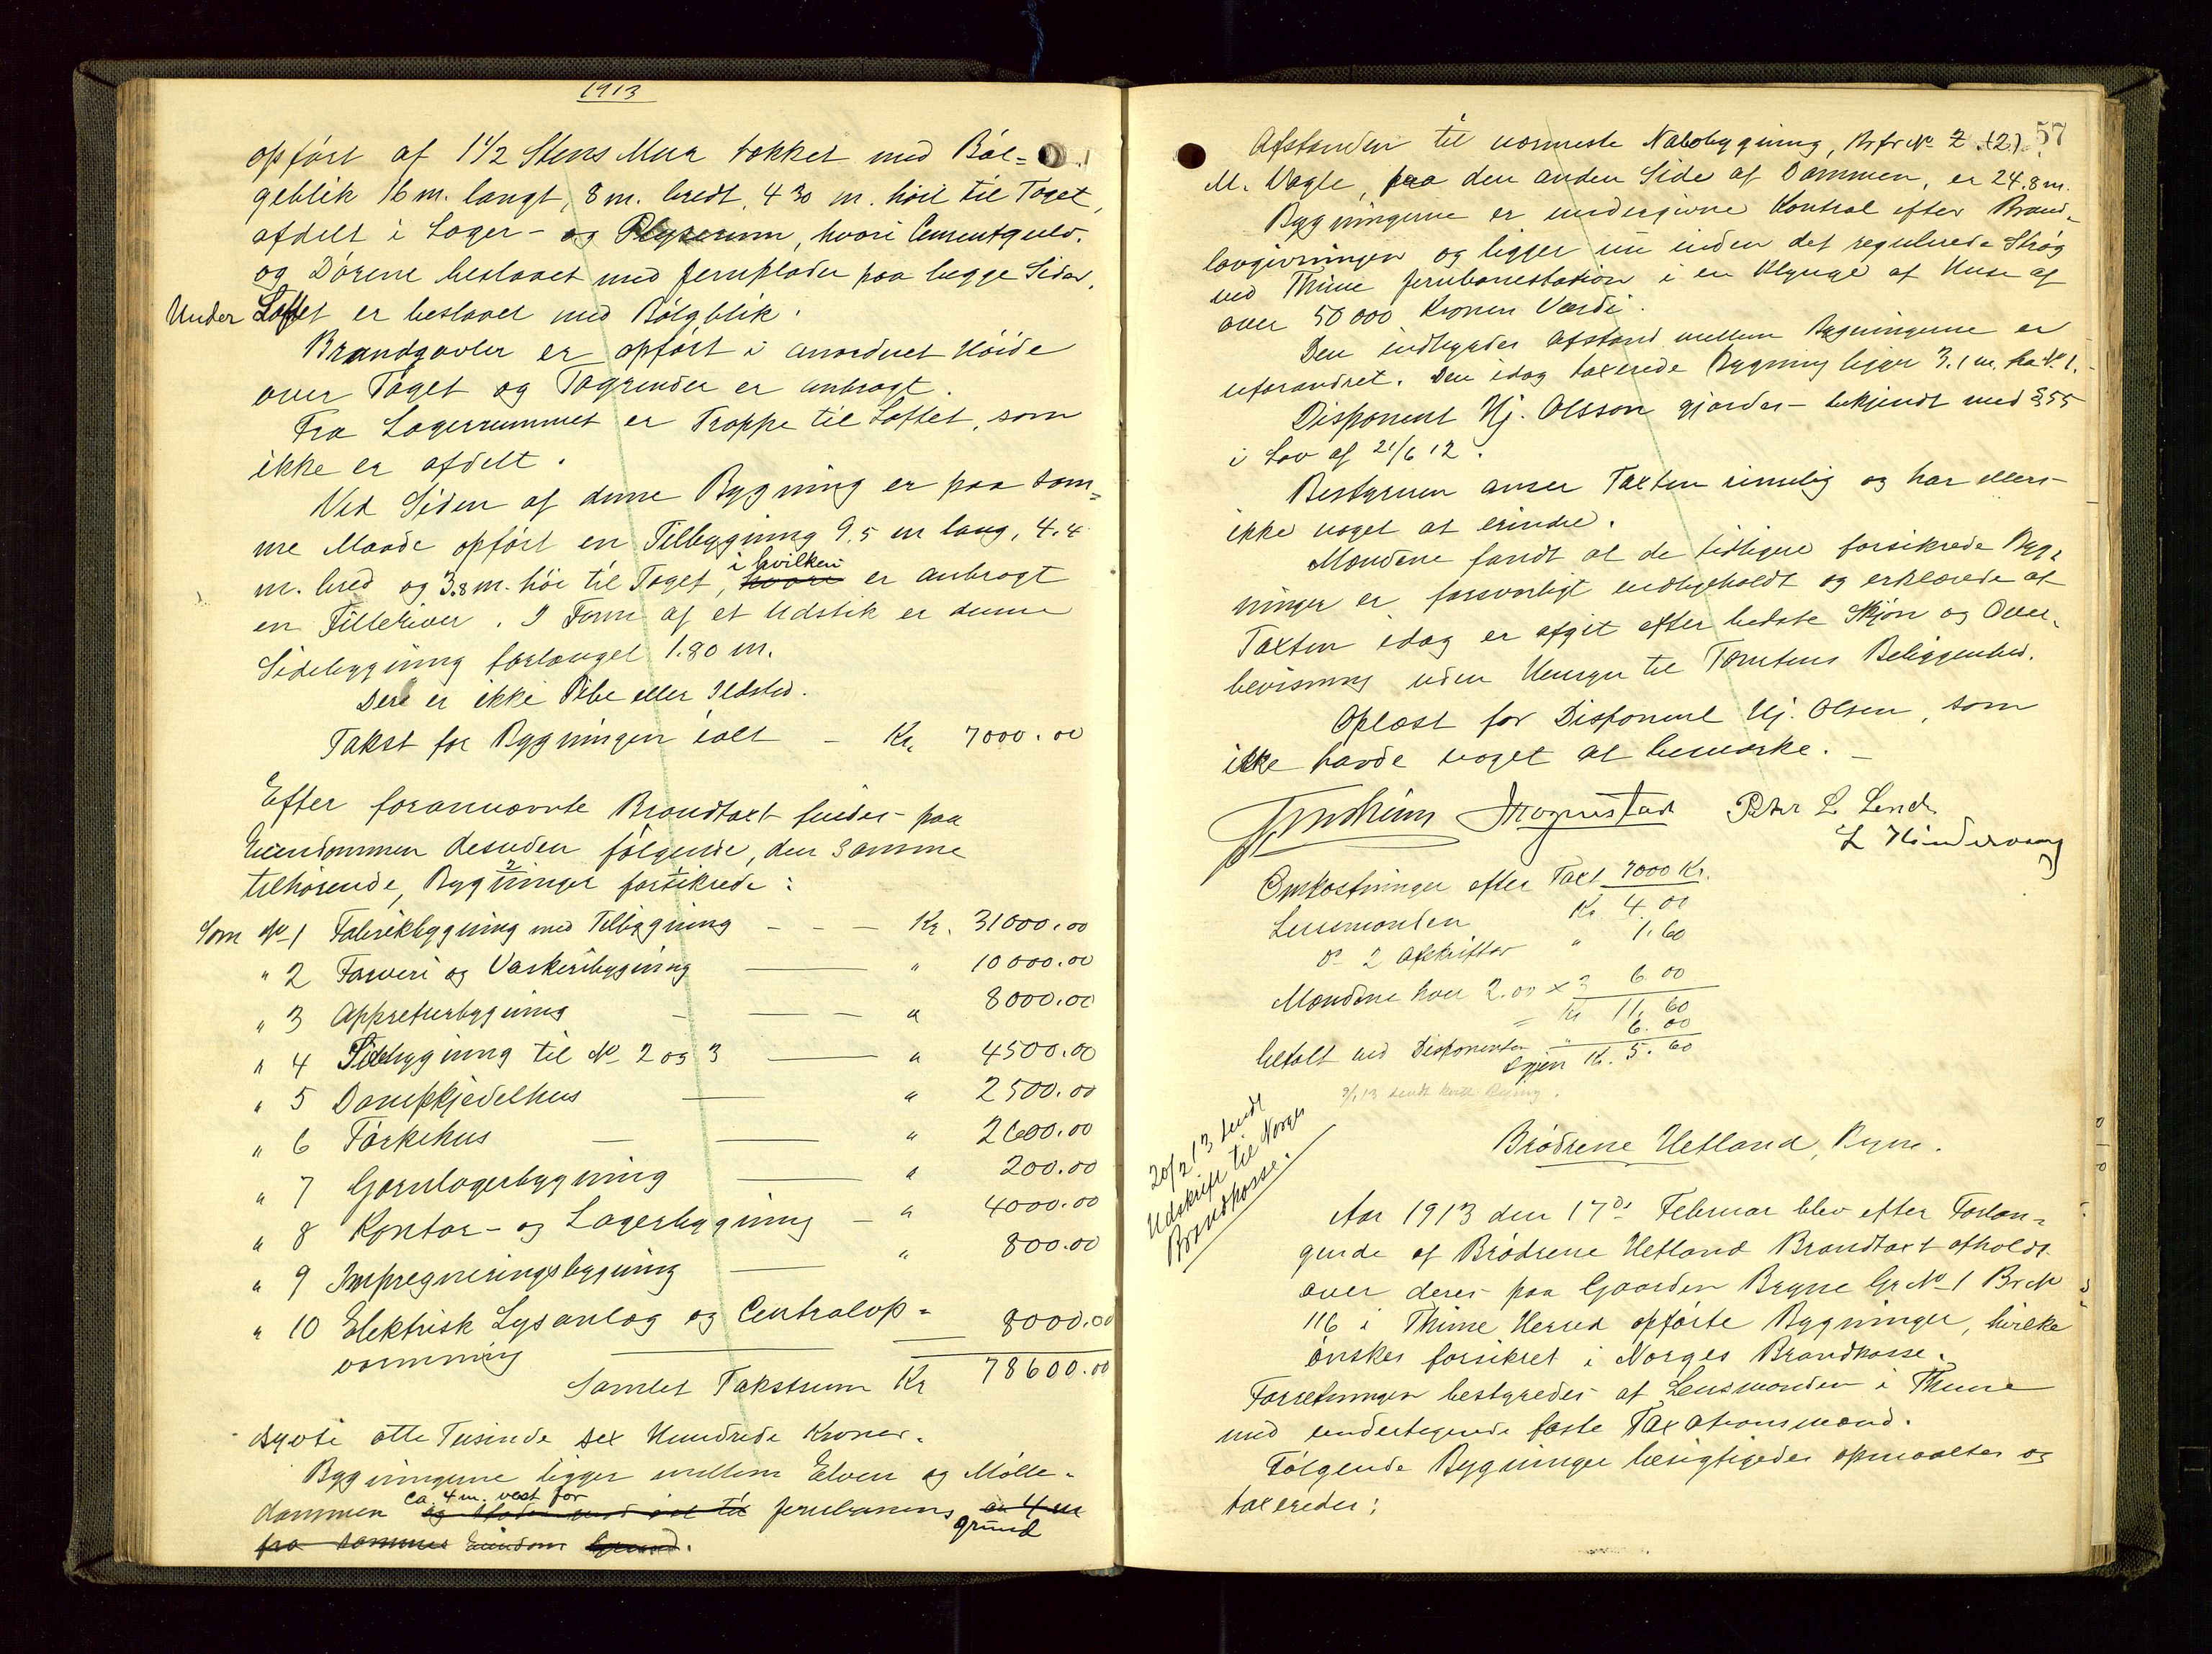 1913
opført af 1 1/2 Stens Mur tækket med Bøl-
geblik 16 m. langt, 8 m. bredt, 4 30 m. høit til Taget,
afdelt i Lager- og Plyserum, hvori Cementgulv.
og Dørene beslaaet med Jernplader paa begge Sider.
Under Loftet er beslaaet med Bølgblik.
Brandgavler er opført i anordnet Høide
over Taget og Tagrender er anbragt.
Fra Lagerrummet er Trappe til Loftet, som
ikke er afdelt.
Ved Siden af denne Bygning er paa sam-
me Maade opført en Tilbygning 9.5 m lang, 4.4
i hvilken
m. bred og 3.8 m. høi til Taget, hvori er anbragt
en Filleriver. I Form af et Udstik er denne
Sidebygning forlænget 1.80 m.
Der er ikke Pibe eller Ildsted.
Takst for Bygningen ialt - Kr. 7000.00
Efter forannævnte Brandtaxt findes paa
Eiendommen desuden følgende, den samme
tilhørende, Bygninger forsikrede:
Som No 1 Fabrikbygning med Tilbygning - - - Kr. 31000.00
" 2 Farveri og Vaskeribygning " 10000.00
" 3 Appreturbygning " 8000.00
" 4 Sidebygning til No 2 og 3 " 4500.00
" 5 Dampkjedelhus " 2500.00
" 6 Tørkehus " 2600.00
" 7 Garnlagerbygning " 200.00
" 8 Kontor- og Lagerbygning - " 4000.00
" 9 Impregneringsbygning " 800.00
" 10 Elektrisk Lysanlæg og Centralop-
varmning 8000.00
Samlet Takstsum Kr 78600.00
Sytti otte Tusinde sex Hundrede Kroner.
Bygningerne ligger mellem Elven og Mølle-
ca. 4 m. vest for
dammen Jernbanens er 4 m
grund
fra sammes Eiendom Grund.
57
Afstanden til nærmeste Nabobygning, Brfr No 2 (2)
M. Vagle, paa den anden Side af Dammen, er 24.8 m.
Bygningerne er undergivne Kontrol efter Brand-
lovgivningen og ligger nu inden det regulerede Strøg
ved Thime Jernbanestation i en Klynge af Huse af
over 50 000 Kroners Værdi.
Den indbyrdes Afstand mellem Bygningerne er
uforandret. Den idag taxerede Bygning ligger 3.1 m. fra No 1.
Disponent Hj. Olsson gjordes bekjendt med § 55
i Lov af 21/6 12.
Bestyreren anser Taxten rimelig og har ellers
ikke noget at erindre.
Mændene fandt at de tidligere forsikrede Byg-
ninger er forsvarligt vedligeholdt og erklærede at
Taxten idag er afgit efter bedste Skjøn og Over-
bevisning uden Hensyn til Tomtens Beliggenhed.
Oplæst for Disponent Hj. Olsen, som
ikke havde noget at bemærke. -
Peter L. Lende
Omkostninger efter Taxt 7000 Kr.
Lensmanden Kr 4.00
Do 2 Afskrifter " 1.60
Mændene hver 2.00 x 3 6.00
= Kr 11.60
betalt ved Disponenten " 6.00
Igjen Kr. 5.60
20/2 13 sendt
Udskrift til Norges
Brandkasse.
Brødrene Hetland, Bryne.
Aar 1913 den 17de Februar blev efter Forlan-
gende af Brødrene Hetland Brandtaxt afholdt
over deres paa Gaarden Bryne Gr No 1 Br No
116 i Thime Herred opførte Bygninger, hvilke
ønskes forsikret i Norges Brandkasse.
Forretningen bestyredes af Lensmanden i Thime
med undertegnede faste Taxationsmænd.
Følgende Bygninger besigtigedes opmaaltes og
taxeredes: